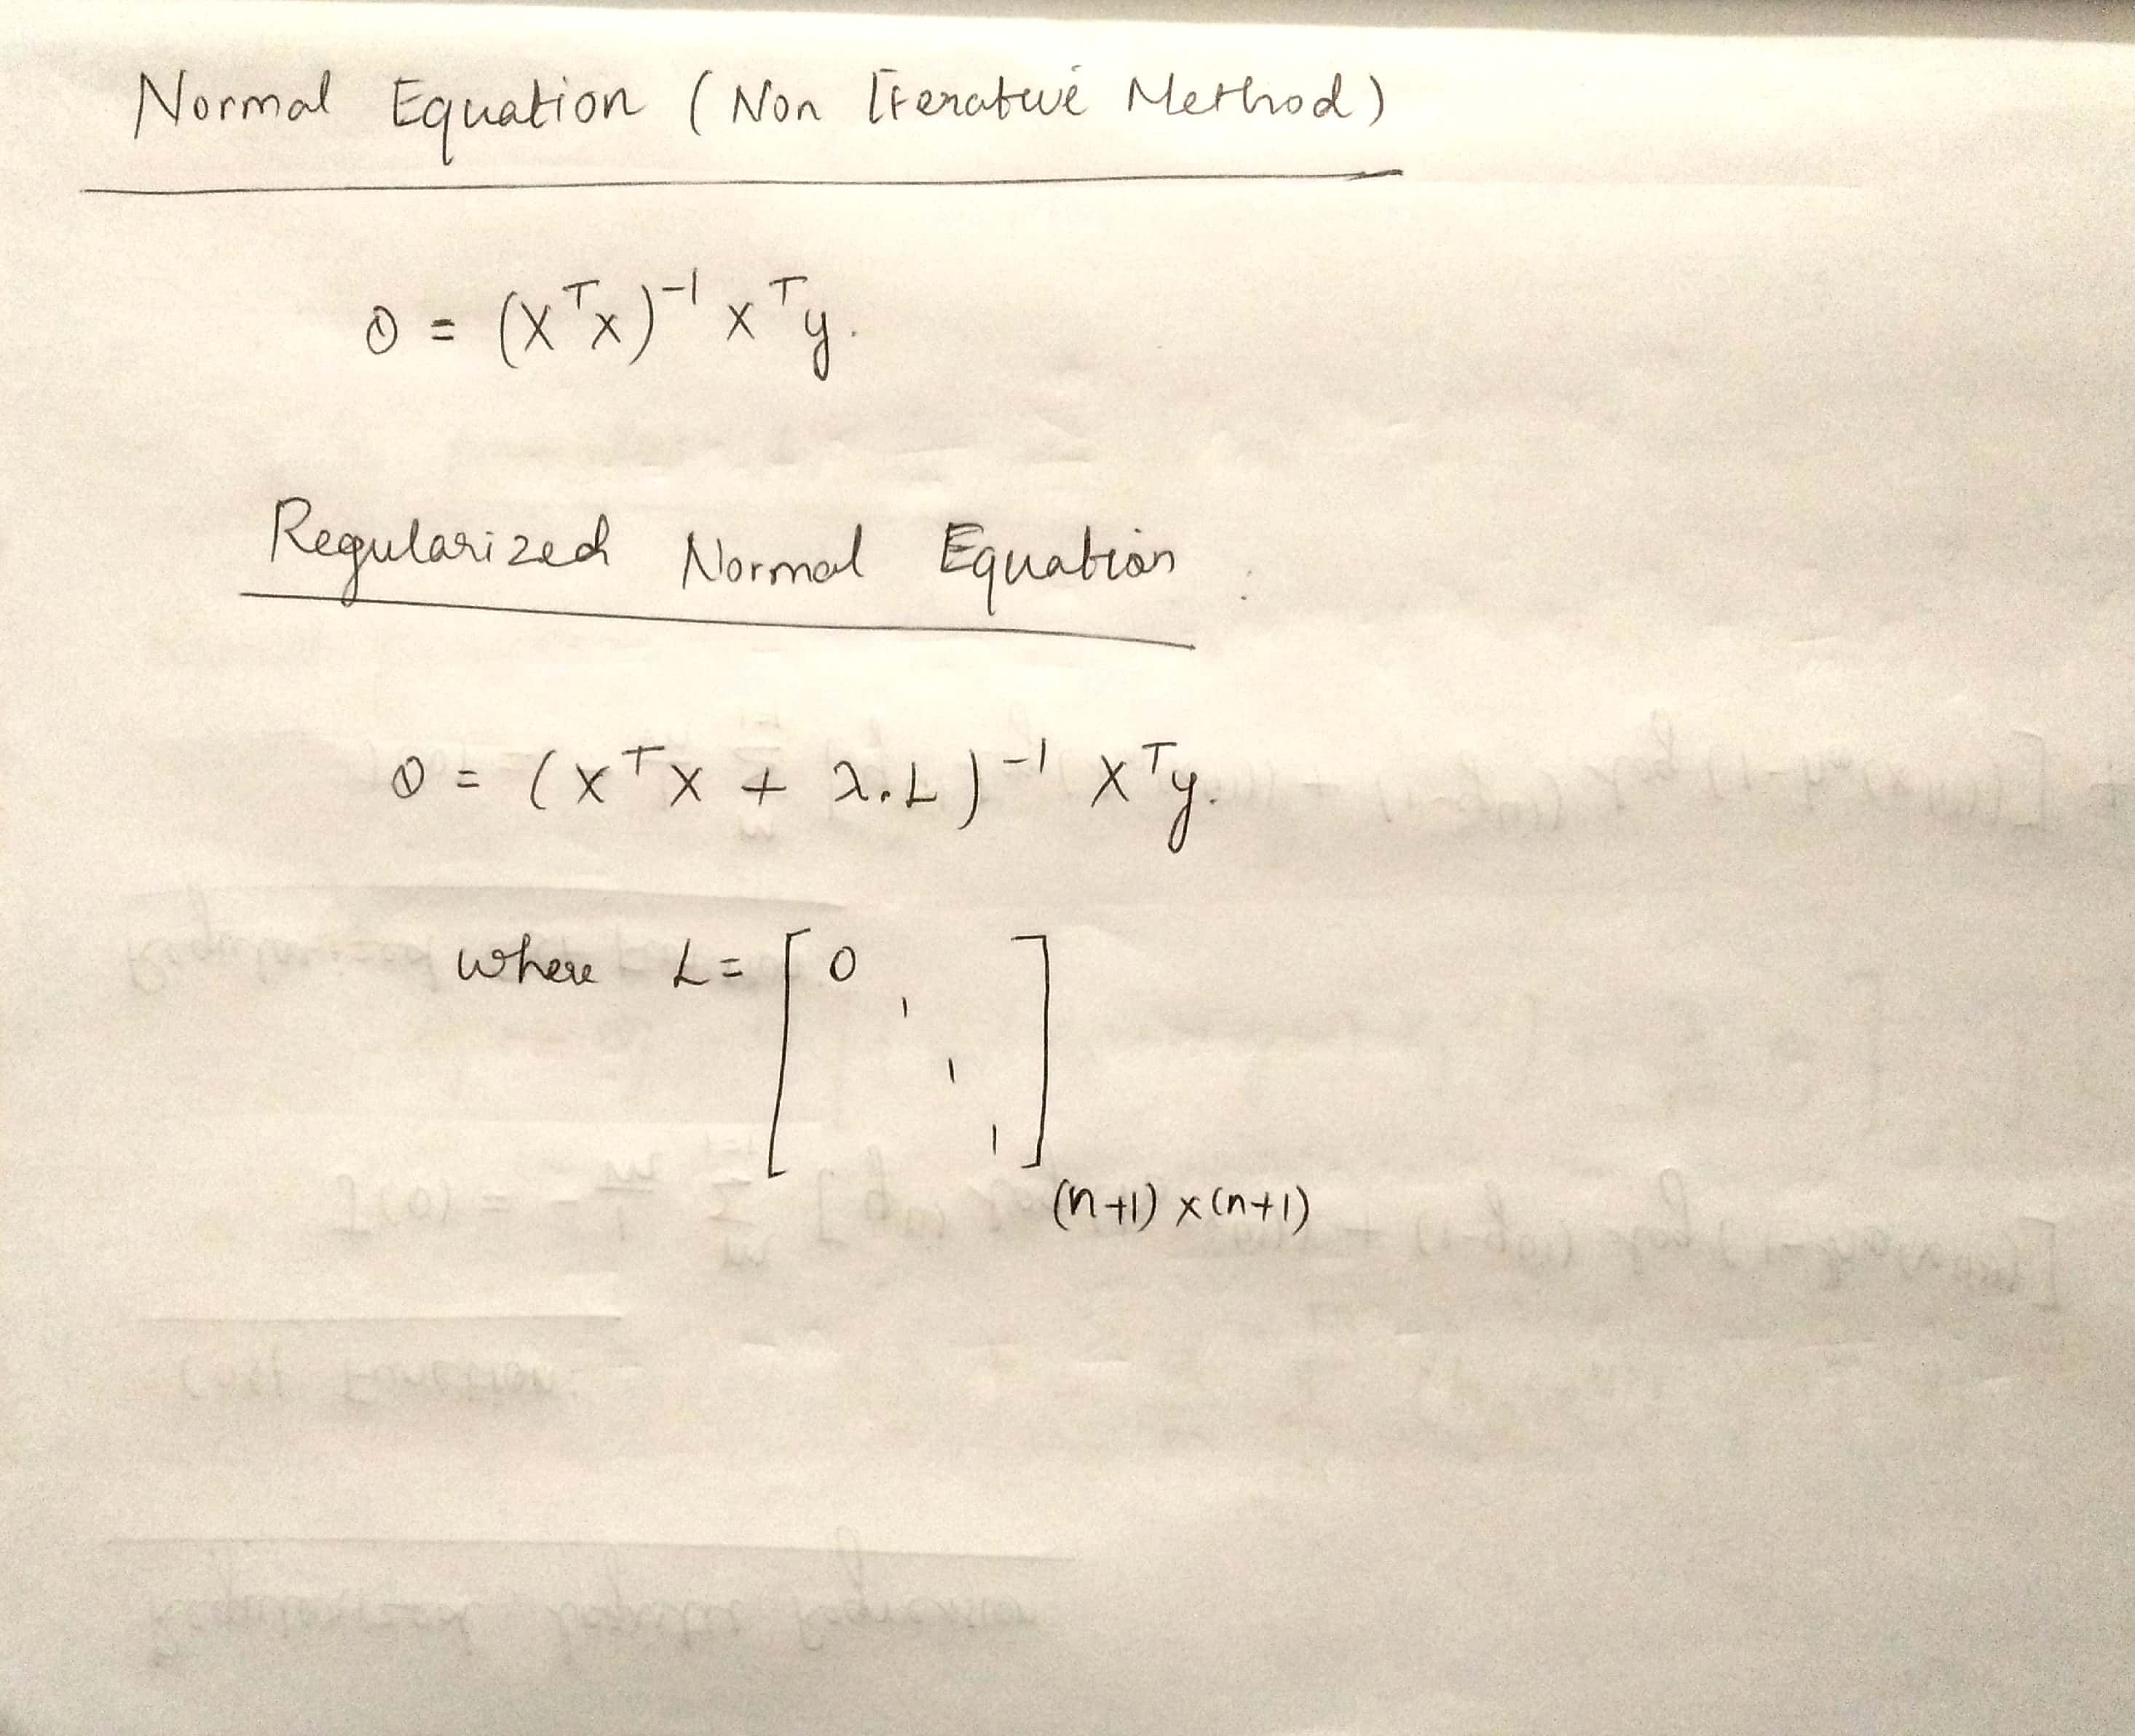 Normal Equation (Non Iterative Method)
θ = (XᵀX)⁻¹ Xᵀy.
Regularized Normal Equation
θ = (XᵀX + λ.L)⁻¹ Xᵀy.
where L = [0
1
1
1]
(n+1) x (n+1)